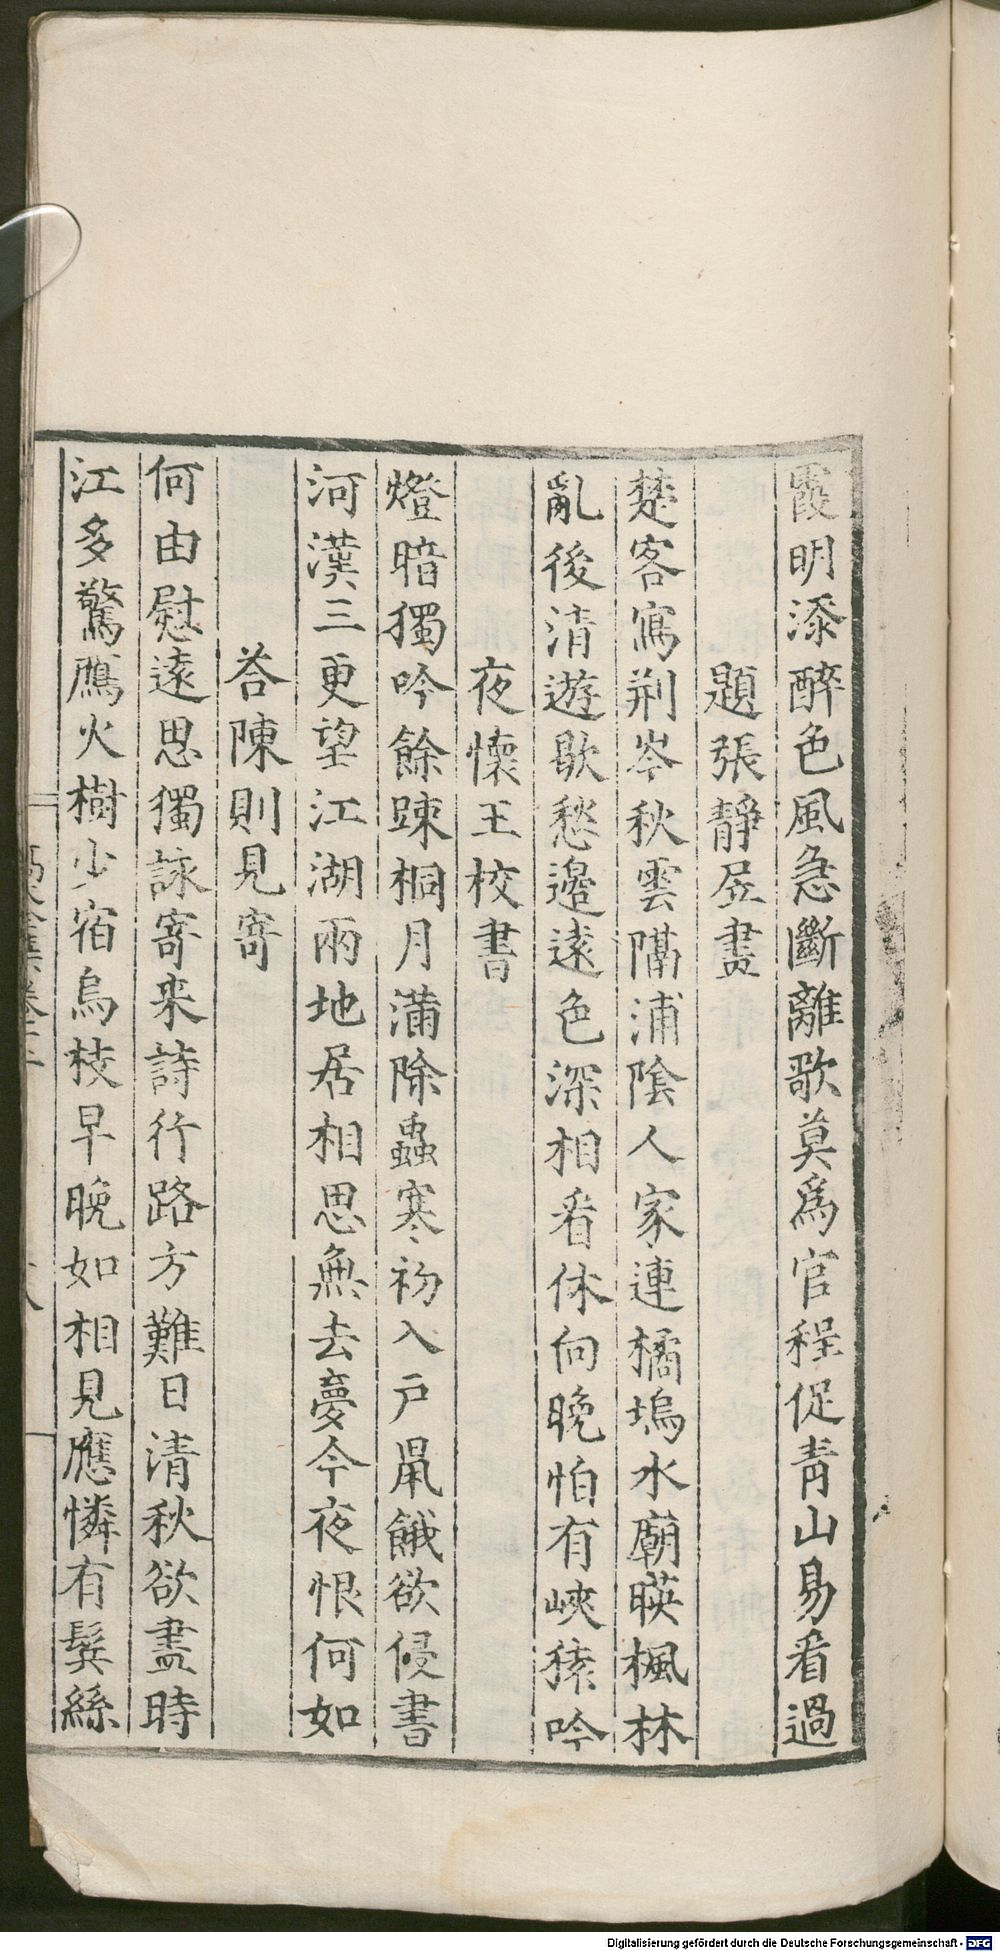 霞明添醉色風急斷離歌莫爲官程促青山易看過
題張靜居畫
楚客寫荆岑秋雲隔浦陰人家連橘塢水廟暎楓林
亂後清遊歇愁邉遠色深相看休向晚怕有峽猿吟
夜懷王校書
燈暗獨吟餘踈桐月滿除蟲寒初入戸鼠餓欲侵書
河漢三更望江湖兩地居相思無去夢今夜恨何如
荅陳則見寄
何由慰遠思獨詠寄来詩行路方難日清秋欲盡時
江多驚鴈火樹少宿烏枝早晚如相見應憐有鬢絲
Digitalisierung gefördert durch die Deutsche Forschungsgemeinschaft - DFG